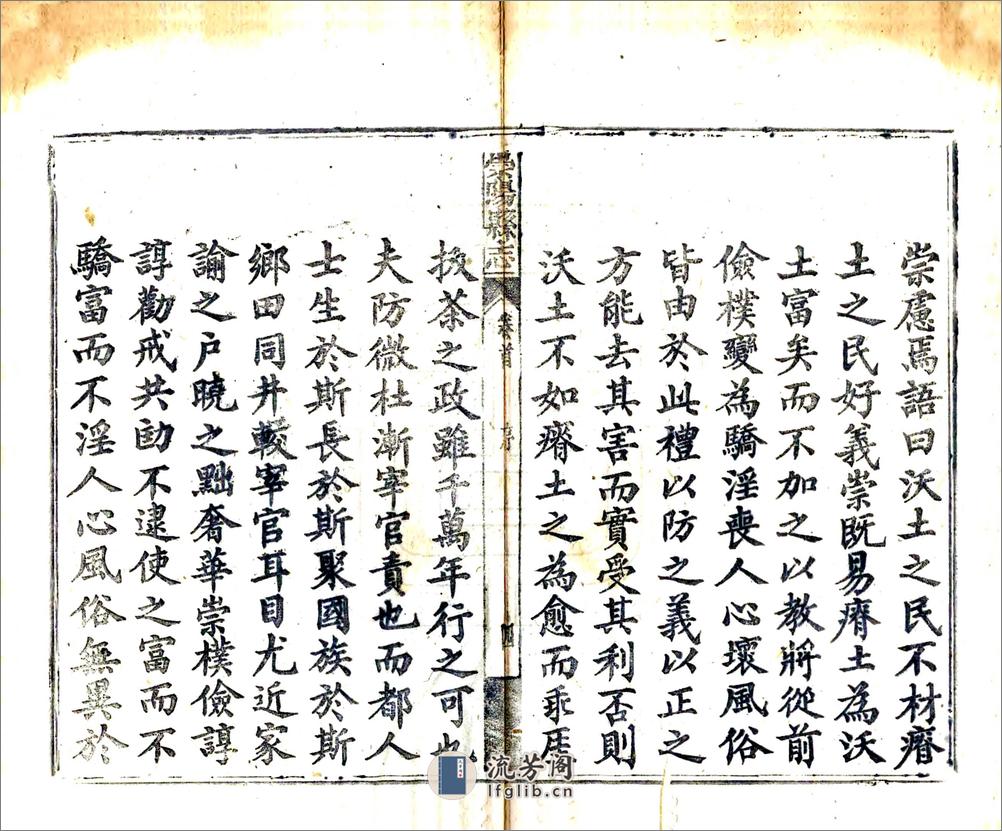 崇慮焉語曰沃土之民不材瘠
土之民好義崇既易瘠土為沃
土富矣而不加之以教將從前
儉樸變為驕淫喪人心壞風俗
皆由於此禮以防之義以正之
方能去其害而實受其利否則
沃土不如瘠土之為愈而乖厓
崇陽縣志
卷首
序
四
拔茶之政雖千萬年行之可也
夫防微杜漸宰官責也而都人
士生於斯長於斯聚國族於斯
鄉田同井較宰官耳目尤近家
諭之戶曉之黜奢華崇樸儉諄
諄勸戒共勖不逮使之富而不
驕富而不淫人心風俗無異於
流芳阁
lfglib.cn